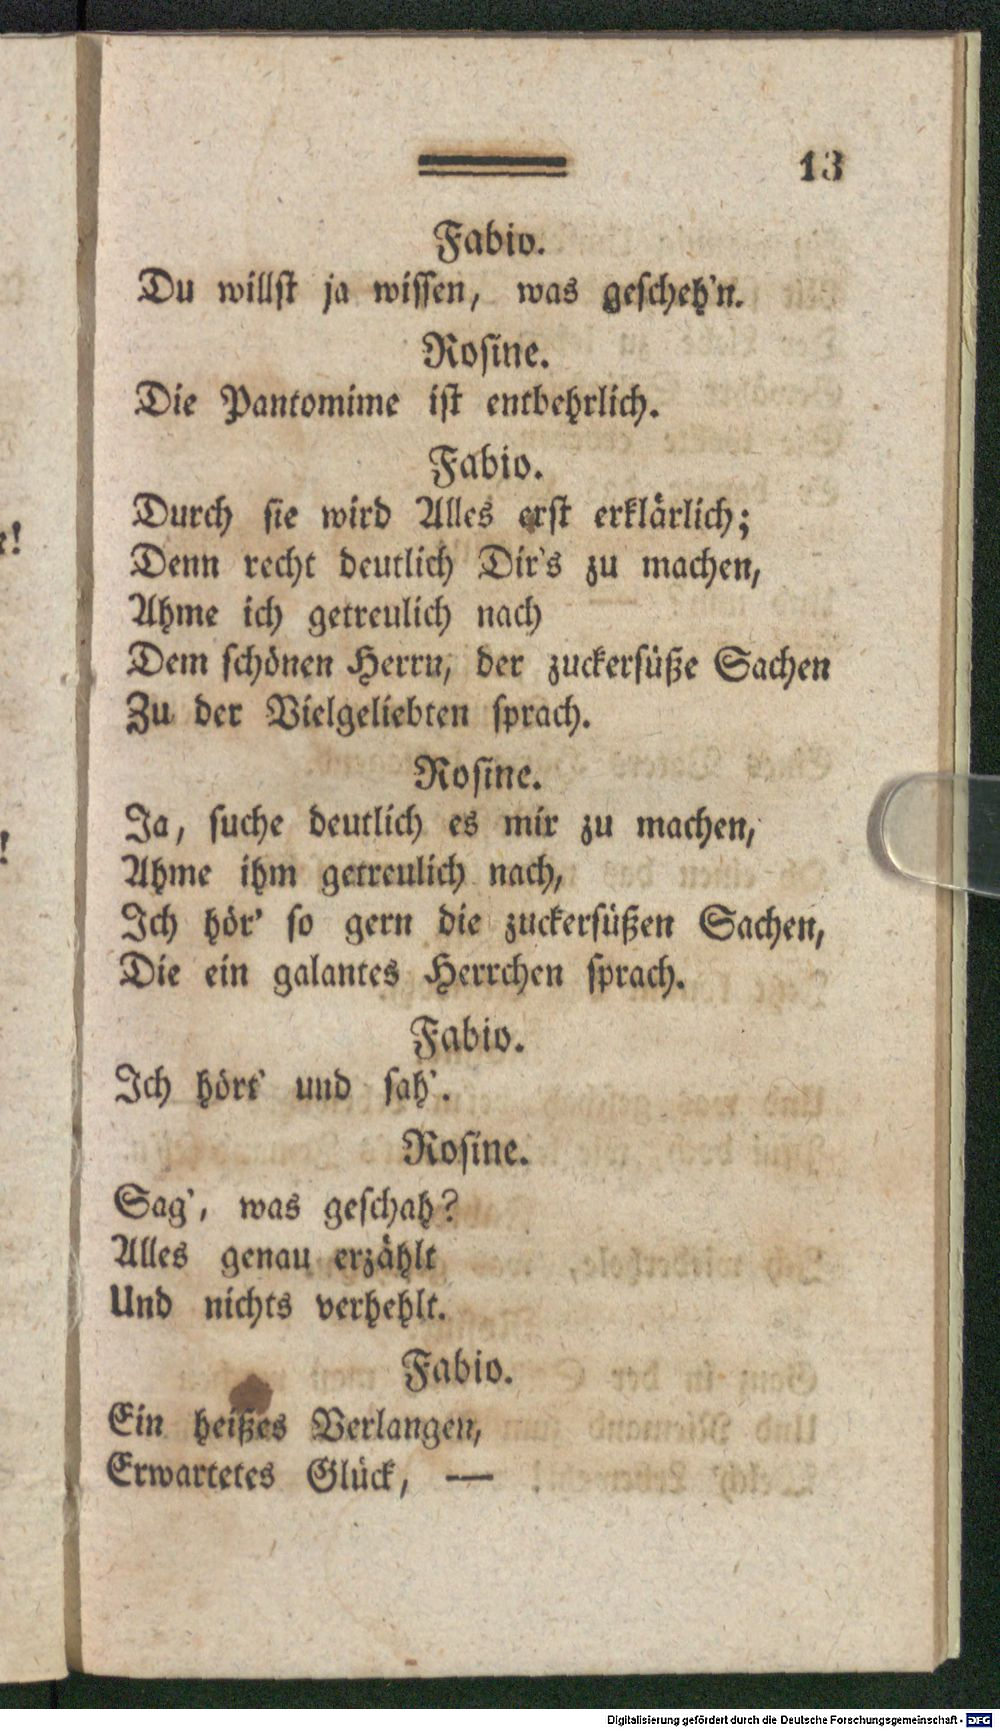 13
Fabio.
Du willst ja wissen, was gescheh'n.
Rosine.
Die Pantomime ist entbehrlich.
Fabio.
Durch sie wird Alles erst erklärlich;
Denn recht deutlich Dir's zu machen,
Ahme ich getreulich nach
Dem schönen Herrn, der zuckersüße Sachen
Zu der Vielgeliebten sprach.
Rosine.
Ja, suche deutlich es mir zu machen,
Ahme ihm getreulich nach,
Ich hör' so gern die zuckersüßen Sachen,
Die ein galantes Herrchen sprach.
Fabio.
Ich hört' und sah'.
Rosine.
Sag', was geschah?
Alles genau erzählt
Und nichts verhehlt.
Fabio.
Ein heißes Verlangen,
Erwartetes Glück, —
Digitalisierung gefördert durch die Deutsche Forschungsgemeinschaft - DFG